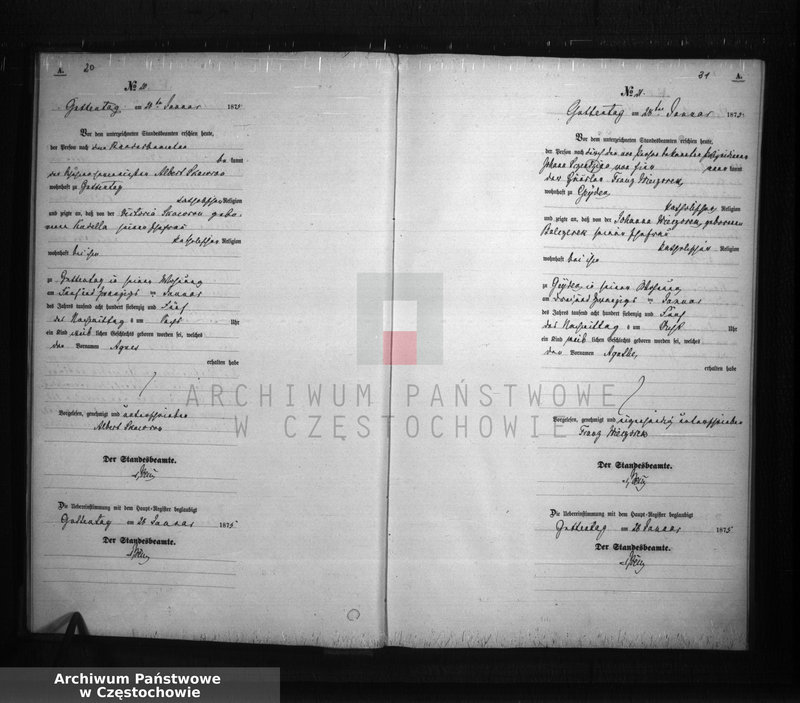 A. 20
№ 20
Guttentag am 28ten Januar 1875
Vor dem unterzeichneten Standesbeamten erschien heute,
der Person nach dem Standesbeamten
be kannt
Albert Skworon
wohnhaft zu Guttentag
katholischen Religion
und zeigte an, daß von der Victoria Skworon gebo-
rene Kudella seiner Ehefrau
katholischen Religion
wohnhaft bei ihm
zu Guttentag in seiner Wohnung
am fünfundzwanzigsten Januar
des Jahres tausend acht hundert siebenzig und fünf
des Nachmittag s um sechs Uhr
ein Kind weib lichen Geschlechts geboren worden sei, welches
den Vornamen Agnes
erhalten habe
Vorgelesen, genehmigt und unterschrieben
Albert Skworon
Der Standesbeamte.
Die Uebereinstimmung mit dem Haupt-Register beglaubigt
Guttentag am 28 Januar 1875
Der Standesbeamte.
21 A.
№ 21
Guttentag am 28ten Januar 1875
Vor dem unterzeichneten Standesbeamten erschien heute,
der Person nach durch den von Person bekannten
Johann von hier kannt
der Häusler Franz Wieczorek,
wohnhaft zu
katholischen Religion
und zeigte an, daß von der Johanna Wieczorek, geborenen
seiner Ehefrau
katholischen Religion
wohnhaft bei ihm
zu in seiner Wohnung
am dreiundzwanzigsten Januar
des Jahres tausend acht hundert siebenzig und fünf
des Nachmittag s um Uhr
ein Kind weib lichen Geschlechts geboren worden sei, welches
den Vornamen Agathe,
erhalten habe
Vorgelesen, genehmigt und eigenhändig unterschrieben
Franz Wieczorek
Der Standesbeamte.
Die Uebereinstimmung mit dem Haupt-Register beglaubigt
Guttentag am 28 Januar 1875
Der Standesbeamte.
ARCHIWUM PAŃSTWOWE
W CZĘSTOCHOWIE
Archiwum Państwowe
w Częstochowie